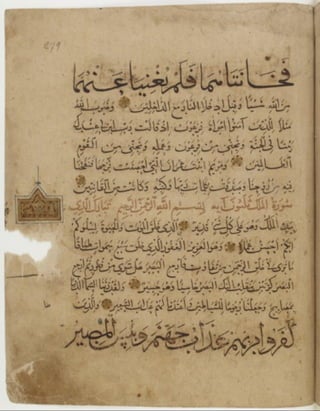 279
فخانتاهما فلم يغنيا عنهما
من الله شيئا وقيل ادخلا النار مع الداخلين وضرب الله
مثلا للذين آمنوا امرأة فرعون إذ قالت رب ابن لي عندك
بيتا في الجنة ونجني من فرعون وعمله ونجني من القوم
الظالمين ومريم ابنت عمران التي أحصنت فرجها فنفخنا
فيه من روحنا وصدقت بكلمات ربها وكتبه وكانت من القانتين
سورة الملك ثلثون آية بسم الله الرحمن الرحيم تبارك الذي
بيده الملك وهو على كل شيء قدير الذي خلق الموت والحياة ليبلوكم
أيكم أحسن عملا وهو العزيز الغفور الذي خلق سبع سموات طباقا
ما ترى في خلق الرحمن من تفاوت فارجع البصر هل ترى من فطور ثم ارجع
البصر كرتين ينقلب إليك البصر خاسئا وهو حسير ولقد زينا السماء الدنيا
بمصابيح وجعلناها رجوما للشياطين وأعتدنا لهم عذاب السعير وللذين
كفروا بربهم عذاب جهنم وبئس المصير